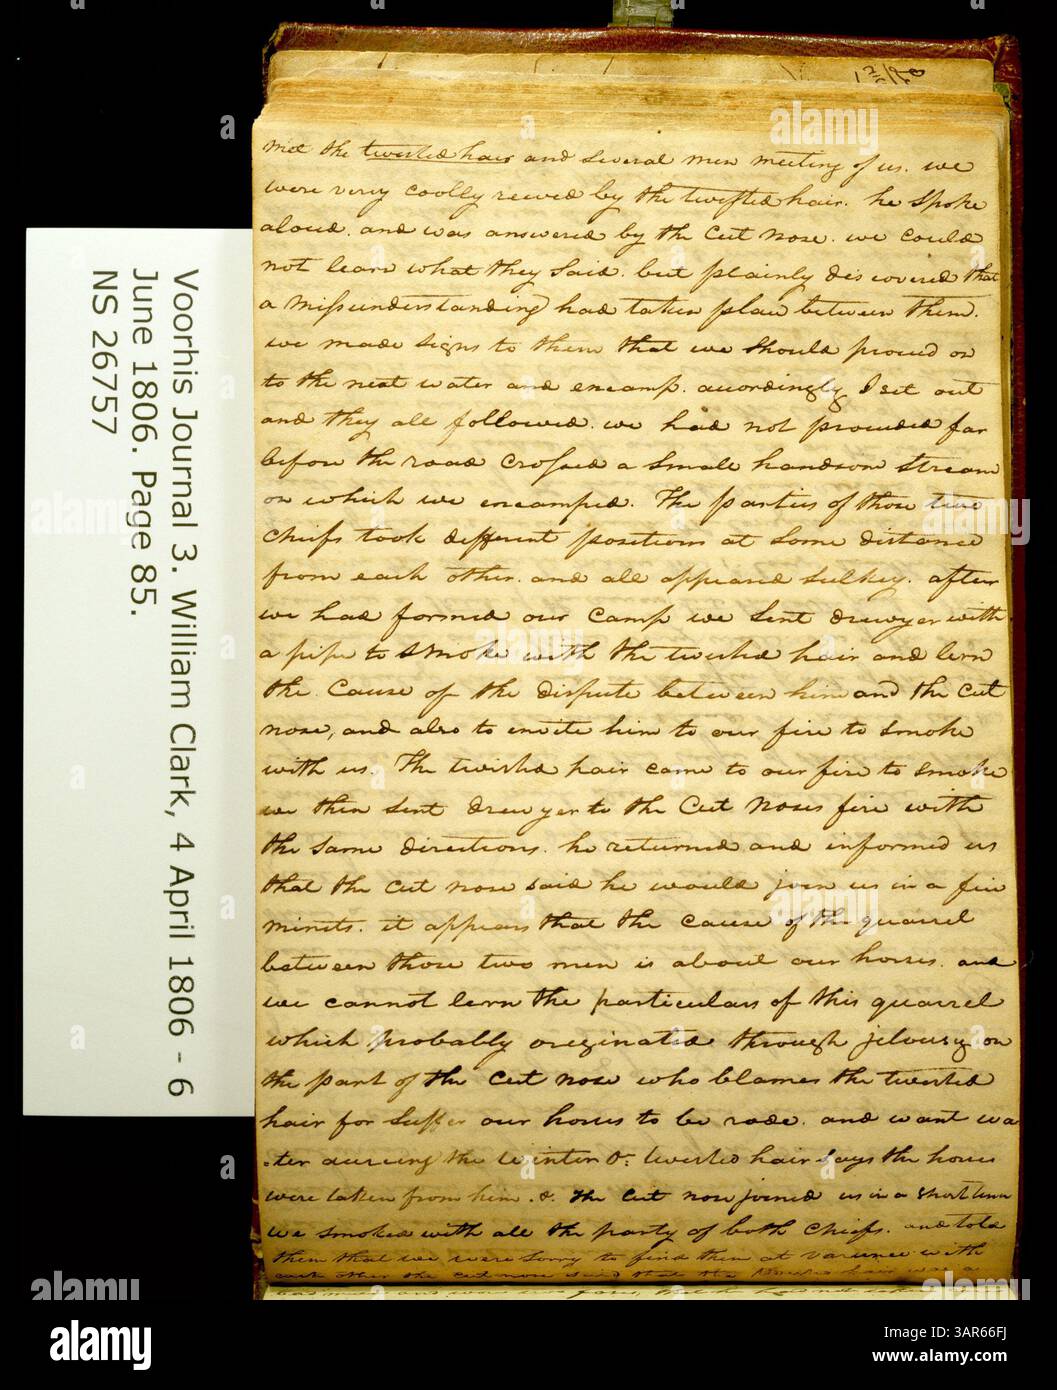 met the twisted hair and several men meeting of us. we
were verry coolly receved by the twisted hair. he spoke
aloud. and was answered by the Cut nose. we could
not learn what they said. but plainly discovered that
a missunderstanding had taken place between them.
we made signs to them that we should proceed on
to the next water and encamp. accordingly I set out
and they all followed. we had not proceeded far
before the road crossed a small handsom stream
on which we encamped. The parties of those two
Chiefs took different positions at some distance
from each other. and all appeared sulkey. after
we had formed our Camp we sent drewyer with
a pipe to smoke with the twisted hair and lern
the Cause of the dispute between him and the Cut
nose, and also to invite him to our fire to smoke
with us. The twisted hair came to our fire to smoke
we then sent drewyer to the Cut Noses fire with
the same directions. he returned and informed us
that the Cut nose said he would join us in a fiew
minits. it appears that the cause of the quarrel
between those two men is about our horses. and
we cannot lern the particulars of this quarrel
which probably originated through jelousy on
the part of the Cut nose who blames the twisted
hair for suffer our horses to be rode. and want wa
ter dureing the Winter &c. twisted hair says the horses
were taken from him. &. The Cut nose joined us in a short time
we smoked with all the party of both Chiefs. and told
them that we were sorry to find them at varience with
each other the cut nose said that the twisted hair was a
Voorhis Journal 3. William Clark, 4 April 1806 - 6
June 1806. Page 85.
NS 26757
alamy
Image ID: 3AR66FJ
www.alamy.com